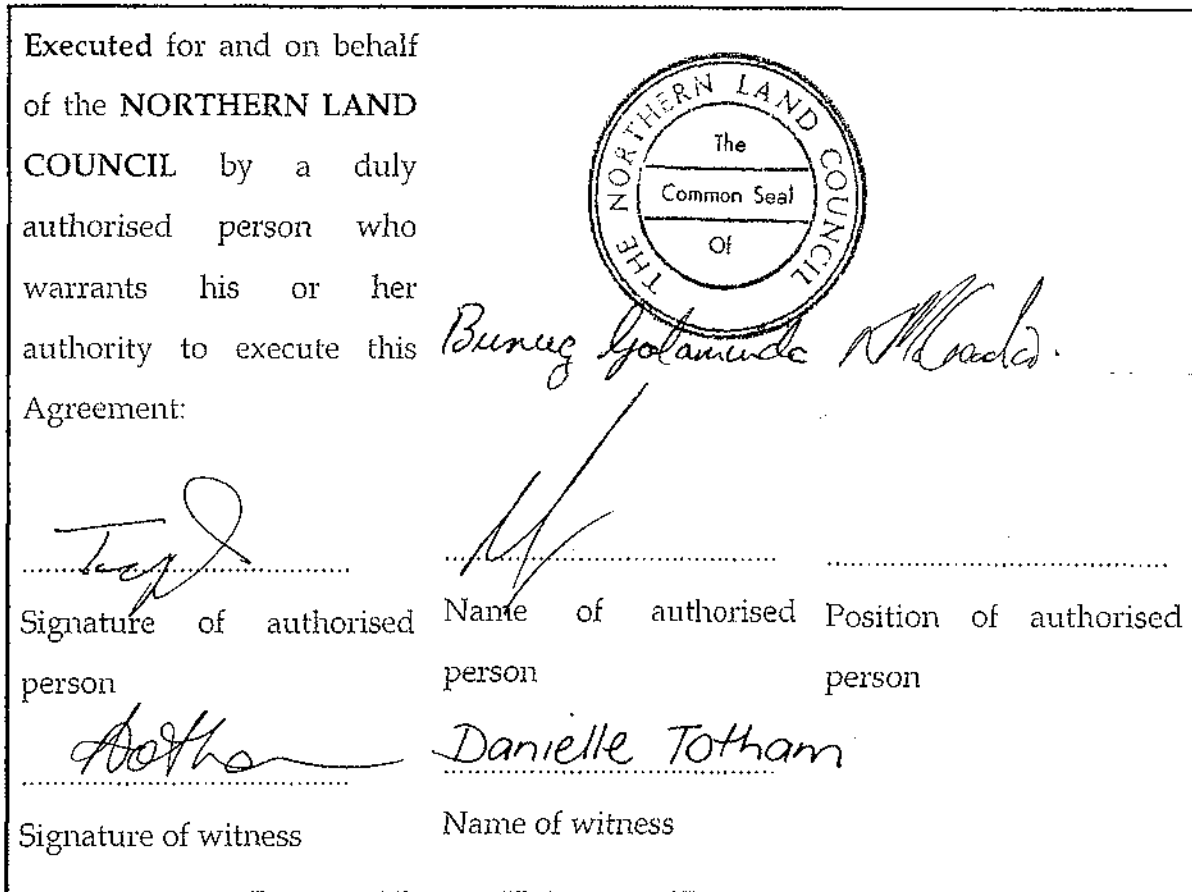 Executed for and on behalf
of the NORTHERN LAND
COUNCIL by a duly
authorised person who
warrants his or her
authority to execute this
Agreement:
THE NORTHERN LAND COUNCIL
The
Common Seal
Of
Signature of authorised
person
Name of authorised
person
Position of authorised
person
Danielle Totham
Signature of witness
Name of witness